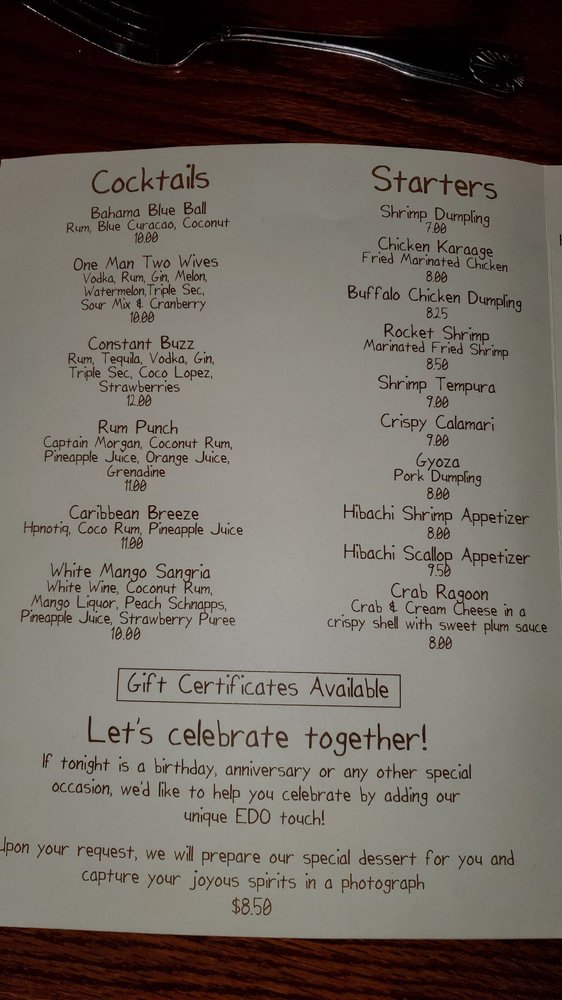 Cocktails
Bahama Blue Ball
Rum, Blue Curacao, Coconut
10.00
One Man Two Wives
Vodka, Rum, Gin, Melon,
Watermelon,Triple Sec,
Sour Mix & Cranberry
10.00
Constant Buzz
Rum, Tequila, Vodka, Gin,
Triple Sec, Coco Lopez,
Strawberries
12.00
Rum Punch
Captain Morgan, Coconut Rum,
Pineapple Juice, Orange Juice,
Grenadine
11.00
Caribbean Breeze
Hpnotiq, Coco Rum, Pineapple Juice
11.00
White Mango Sangria
White Wine, Coconut Rum,
Mango Liquor, Peach Schnapps,
Pineapple Juice, Strawberry Puree
10.00
Starters
Shrimp Dumpling
7.00
Chicken Karaage
Fried Marinated Chicken
8.00
Buffalo Chicken Dumpling
8.25
Rocket Shrimp
Marinated Fried Shrimp
8.50
Shrimp Tempura
9.00
Crispy Calamari
9.00
Gyoza
Pork Dumpling
8.00
Hibachi Shrimp Appetizer
8.00
Hibachi Scallop Appetizer
9.50
Crab Ragoon
Crab & Cream Cheese in a
crispy shell with sweet plum sauce
8.00
Gift Certificates Available
Let's celebrate together!
If tonight is a birthday, anniversary or any other special
occasion, we'd like to help you celebrate by adding our
unique EDO touch!
Upon your request, we will prepare our special dessert for you and
capture your joyous spirits in a photograph
$8.50